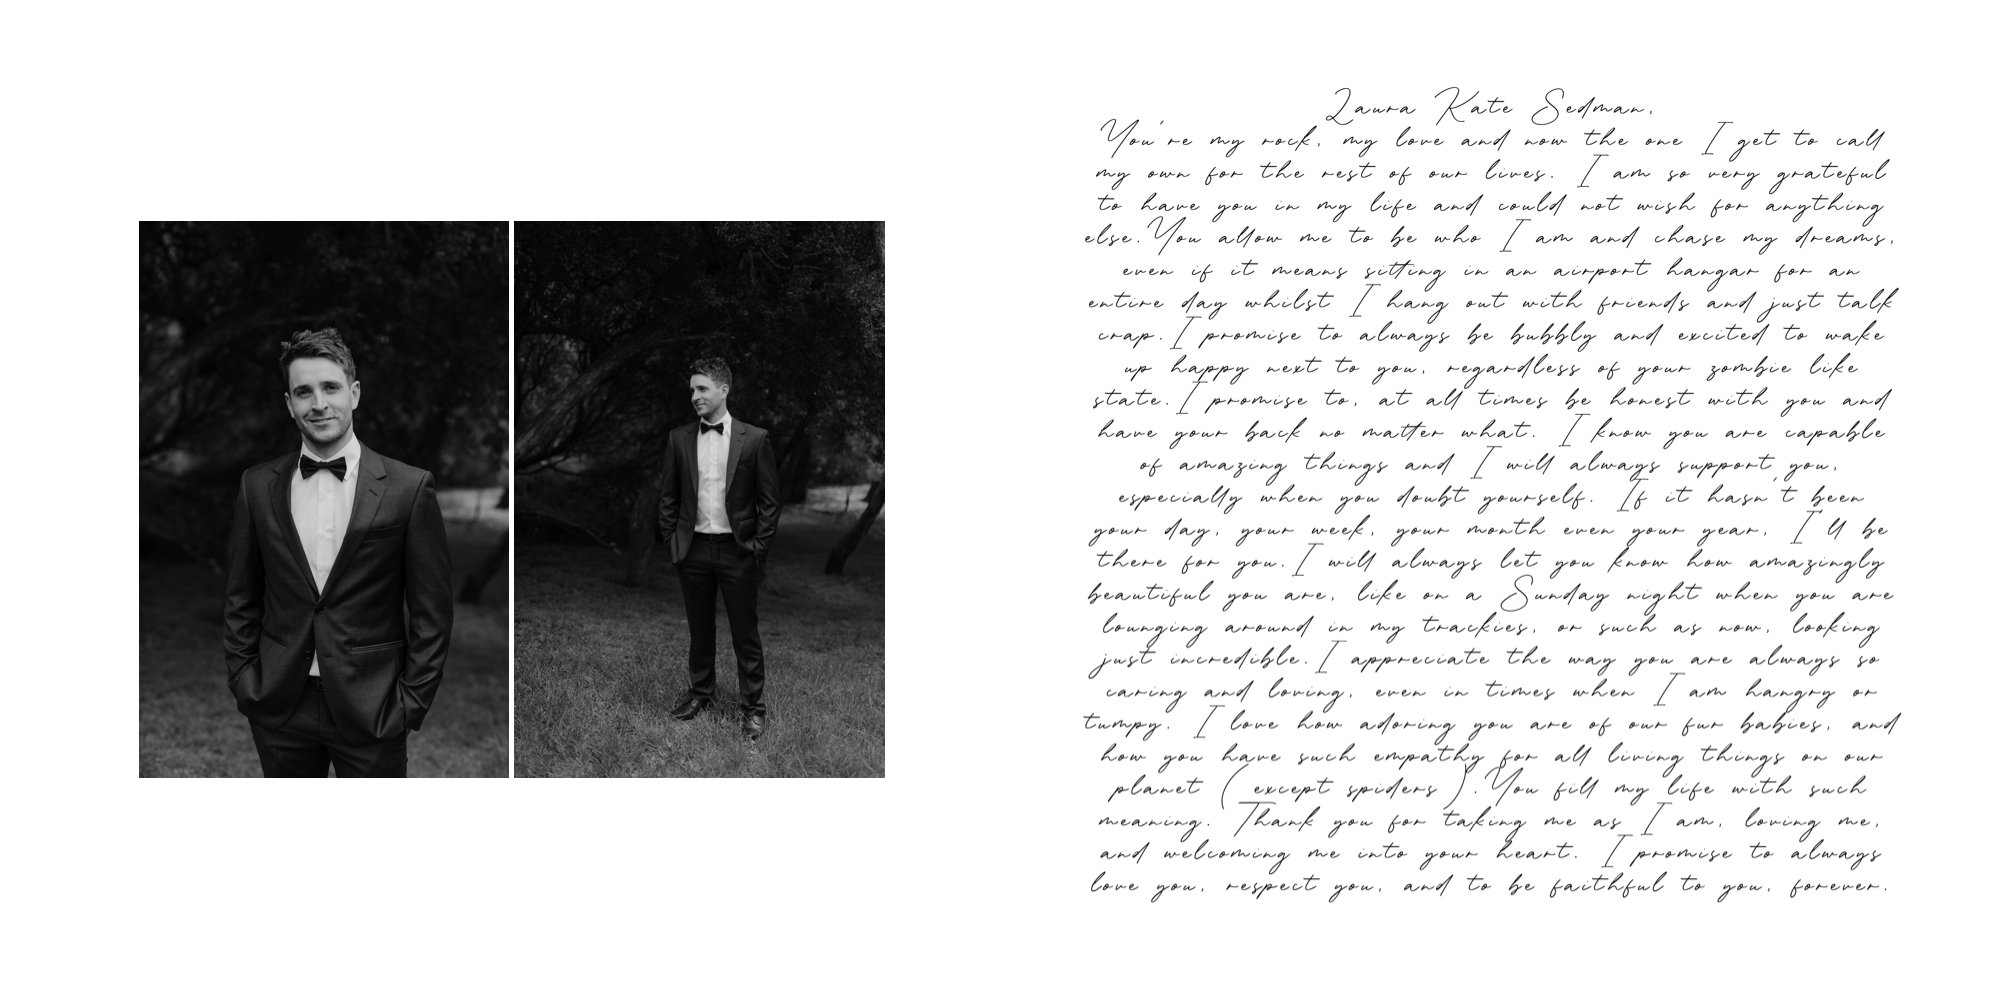 Laura Kate Sedman,
You're my rock, my love and now the one I get to call
my own for the rest of our lives. I am so very grateful
to have you in my life and could not wish for anything
else. You allow me to be who I am and chase my dreams,
even if it means sitting in an airport hangar for an
entire day whilst I hang out with friends and just talk
crap. I promise to always be bubbly and excited to wake
up happy next to you, regardless of your zombie like
state. I promise to, at all times be honest with you and
have your back no matter what. I know you are capable
of amazing things and I will always support you,
especially when you doubt yourself. If it hasn't been
your day, your week, your month even your year, I'll be
there for you. I will always let you know how amazingly
beautiful you are, like on a Sunday night when you are
lounging around in my trackies, or such as now, looking
just incredible. I appreciate the way you are always so
caring and loving, even in times when I am hangry or
tumpy. I love how adoring you are of our fur babies, and
how you have such empathy for all living things on our
planet (except spiders). You fill my life with such
meaning. Thank you for taking me as I am, loving me,
and welcoming me into your heart. I promise to always
love you, respect you, and to be faithful to you, forever.